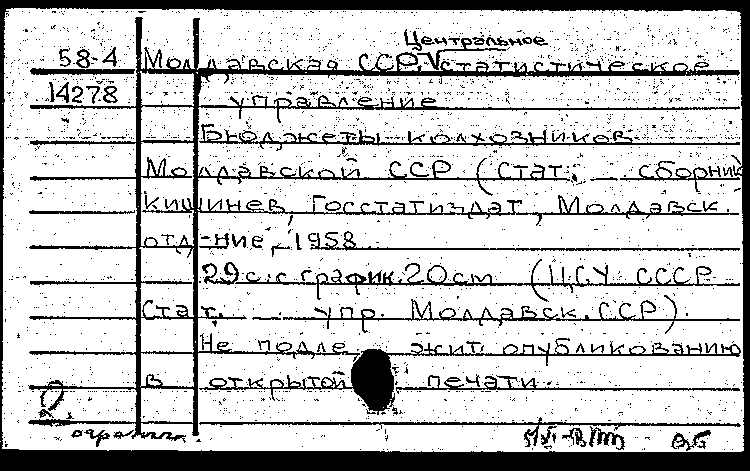 Центральное
58-4 Молдавская ССР. статистическое
14278 управление
Бюджеты колхозников
Молдавской ССР (Стат. сборник)
Кишинев, Госстатиздат, Молдавск.
отд-ние, 1958.
29 с. с график. 20 см (ЦСУ СССР
Стат. упр. Молдавск. ССР).
Не подлежит опубликованию
в открытой печати.
огранич.